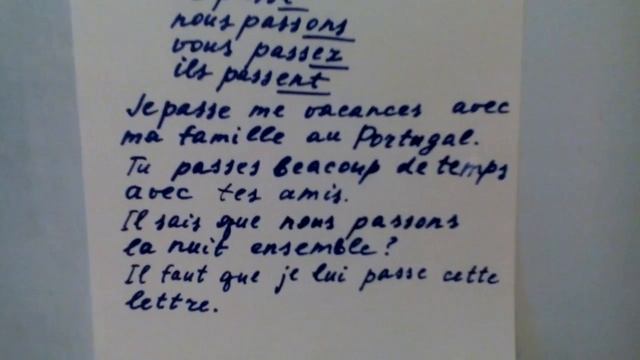 nous passons
vous passez
ils passent
Je passe me vacances avec
ma famille au Portugal.
Tu passes beacoup de temps
avec tes amis.
Il sais que nous passons
la nuit ensemble?
Il faut que je lui passe cette
lettre.